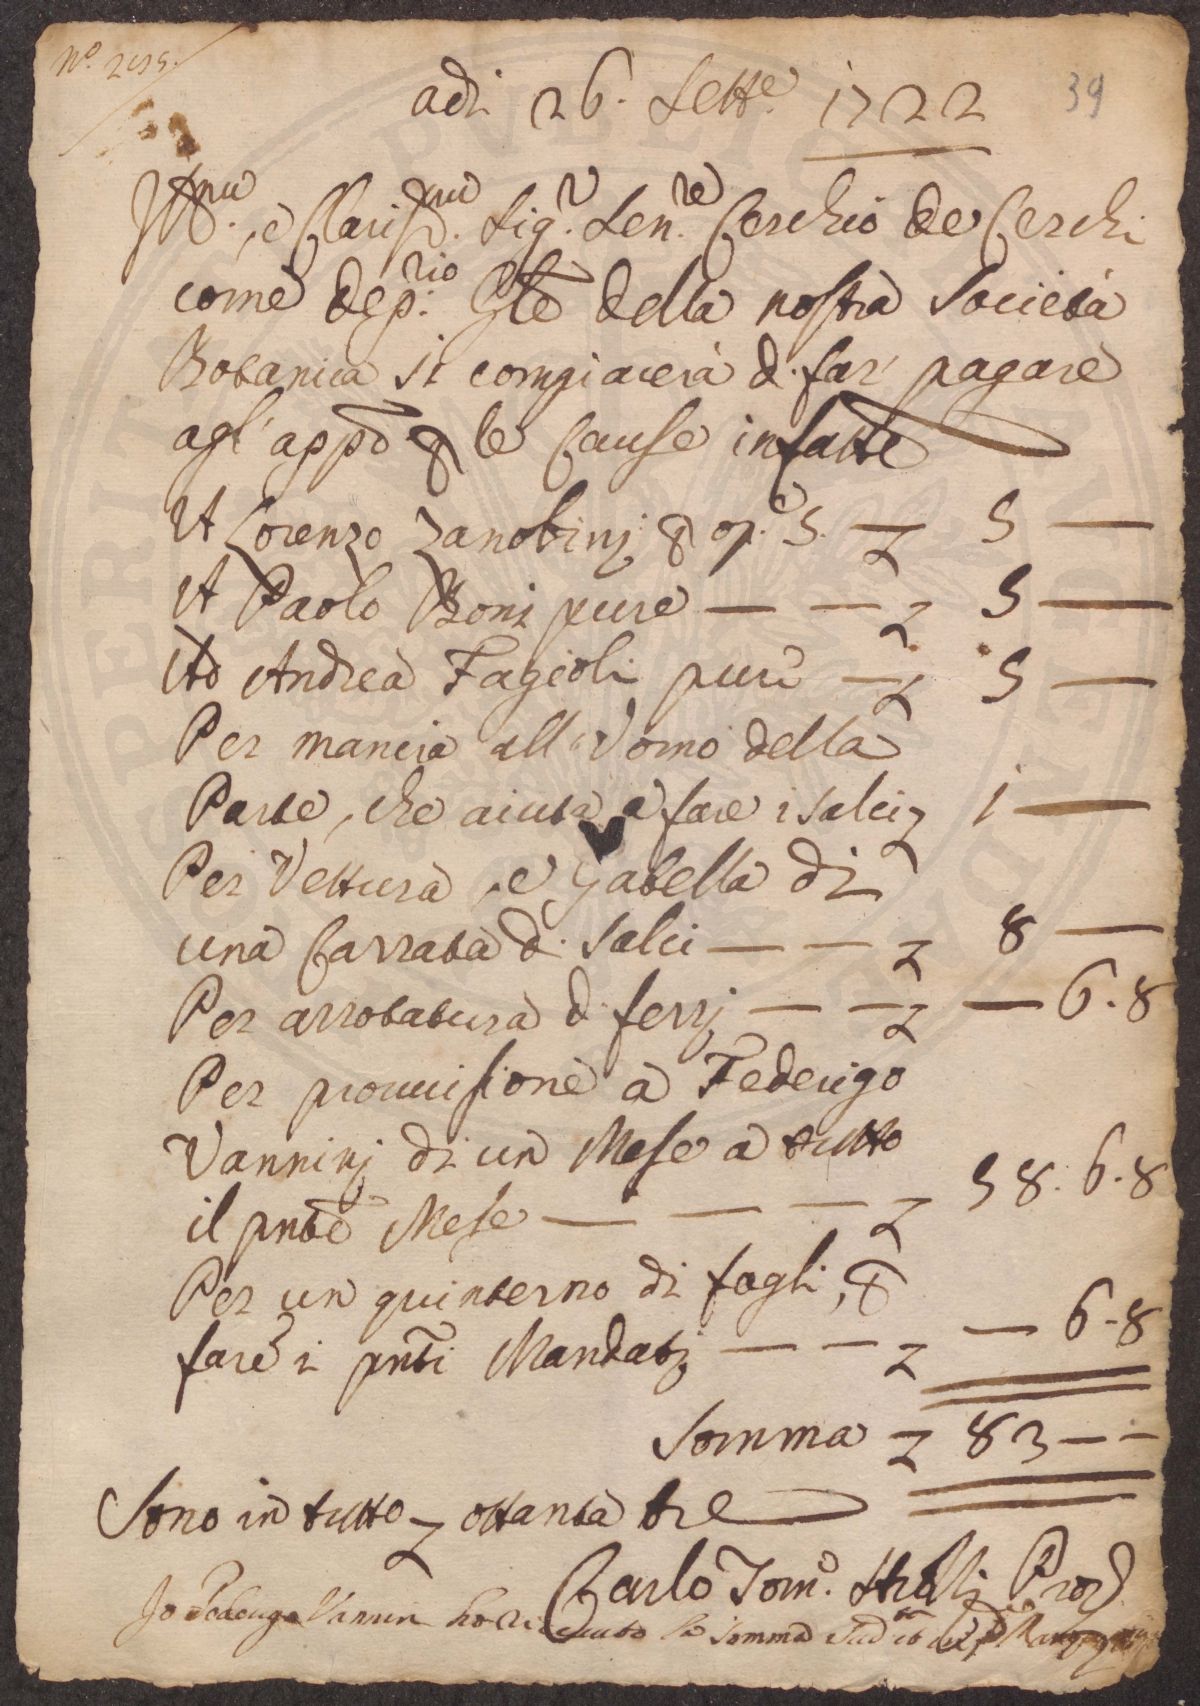 N.º 2199.
39
adi 26. Sett.e 1722
Ill.mo, e Clariss.mo Sig.r Sen.re Cerchio de Cerchi
come dep.rio Gle della nostra Società
Botanica si compiacerà di far pagare
agl'appo p le Cause infatte
A Lorenzo Zanobinj p op.e 5. — £ 5 —
A Paolo Boni pure — — £ 5 —
Ad Andrea Fagioli pure — £ 5 —
Per mancia all'Uomo della
Parte, che aiuta a fare i salci £ 1 —
Per Vettura, e Gabella di
una Carrata di salci — — £ 8 —
Per arrotatura di ferrj — — £ — 6.8
Per provvisione à Federigo
Vanninj di un Mese a tutto
il pnte Mese — — — £ 58.6.8
Per un quinterno di fogli, p
fare i pnti Mandatj — — £ — 6.8
Somma £ 83 — —
Sono in tutto £ ottanta tre
Carlo Tom.o
Io Vannin ho la somma